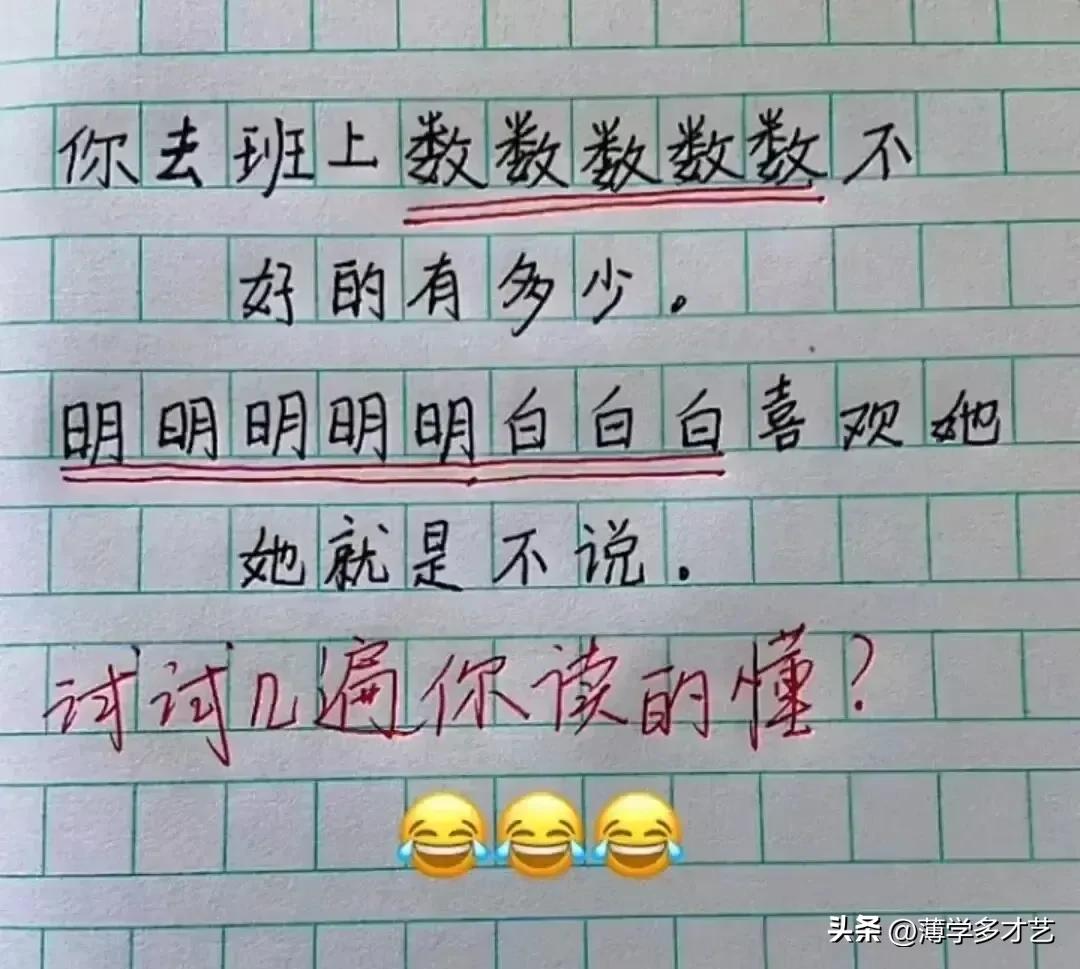 你去班上数数数数数不
好的有多少。
明明明明明白白白喜欢她
她就是不说.
试试几遍你读的懂?
头条 @薄学多才艺